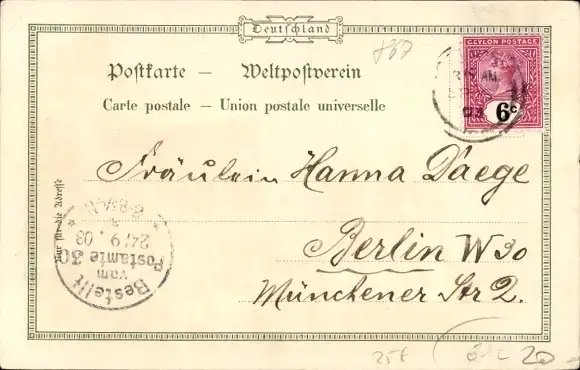 Deutschland
887
CEYLON POSTAGE
6c
Postkarte — Weltpostverein
Carte postale — Union postale universelle
Fräulein Hanna Daege
Berlin W 30
Münchener Str 2.
Nur für die Adresse
Bestellt
vom
Postamte 30
24/9. 03
25€
20